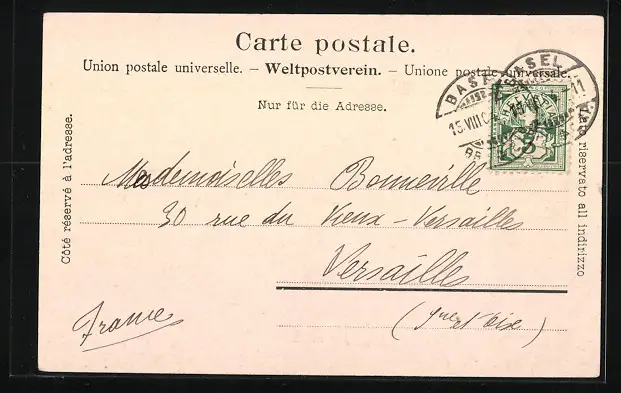 Carte postale.
Union postale universelle. – Weltpostverein. – Unione postale universale.
Nur für die Adresse.
Côté réservé à l'adresse.
Lato riservato all indirizzo
BASEL
BASEL
Mesdemoiselles Bonneville
30 rue du Vieux-Versailles
Versailles
(Seine et Oise)
France